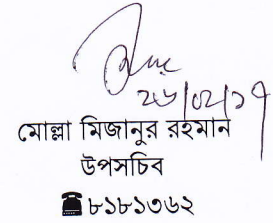 ২৬/০২/১৭
মোল্লা মিজানুর রহমান
উপসচিব
☎৮১৮১৩৬২